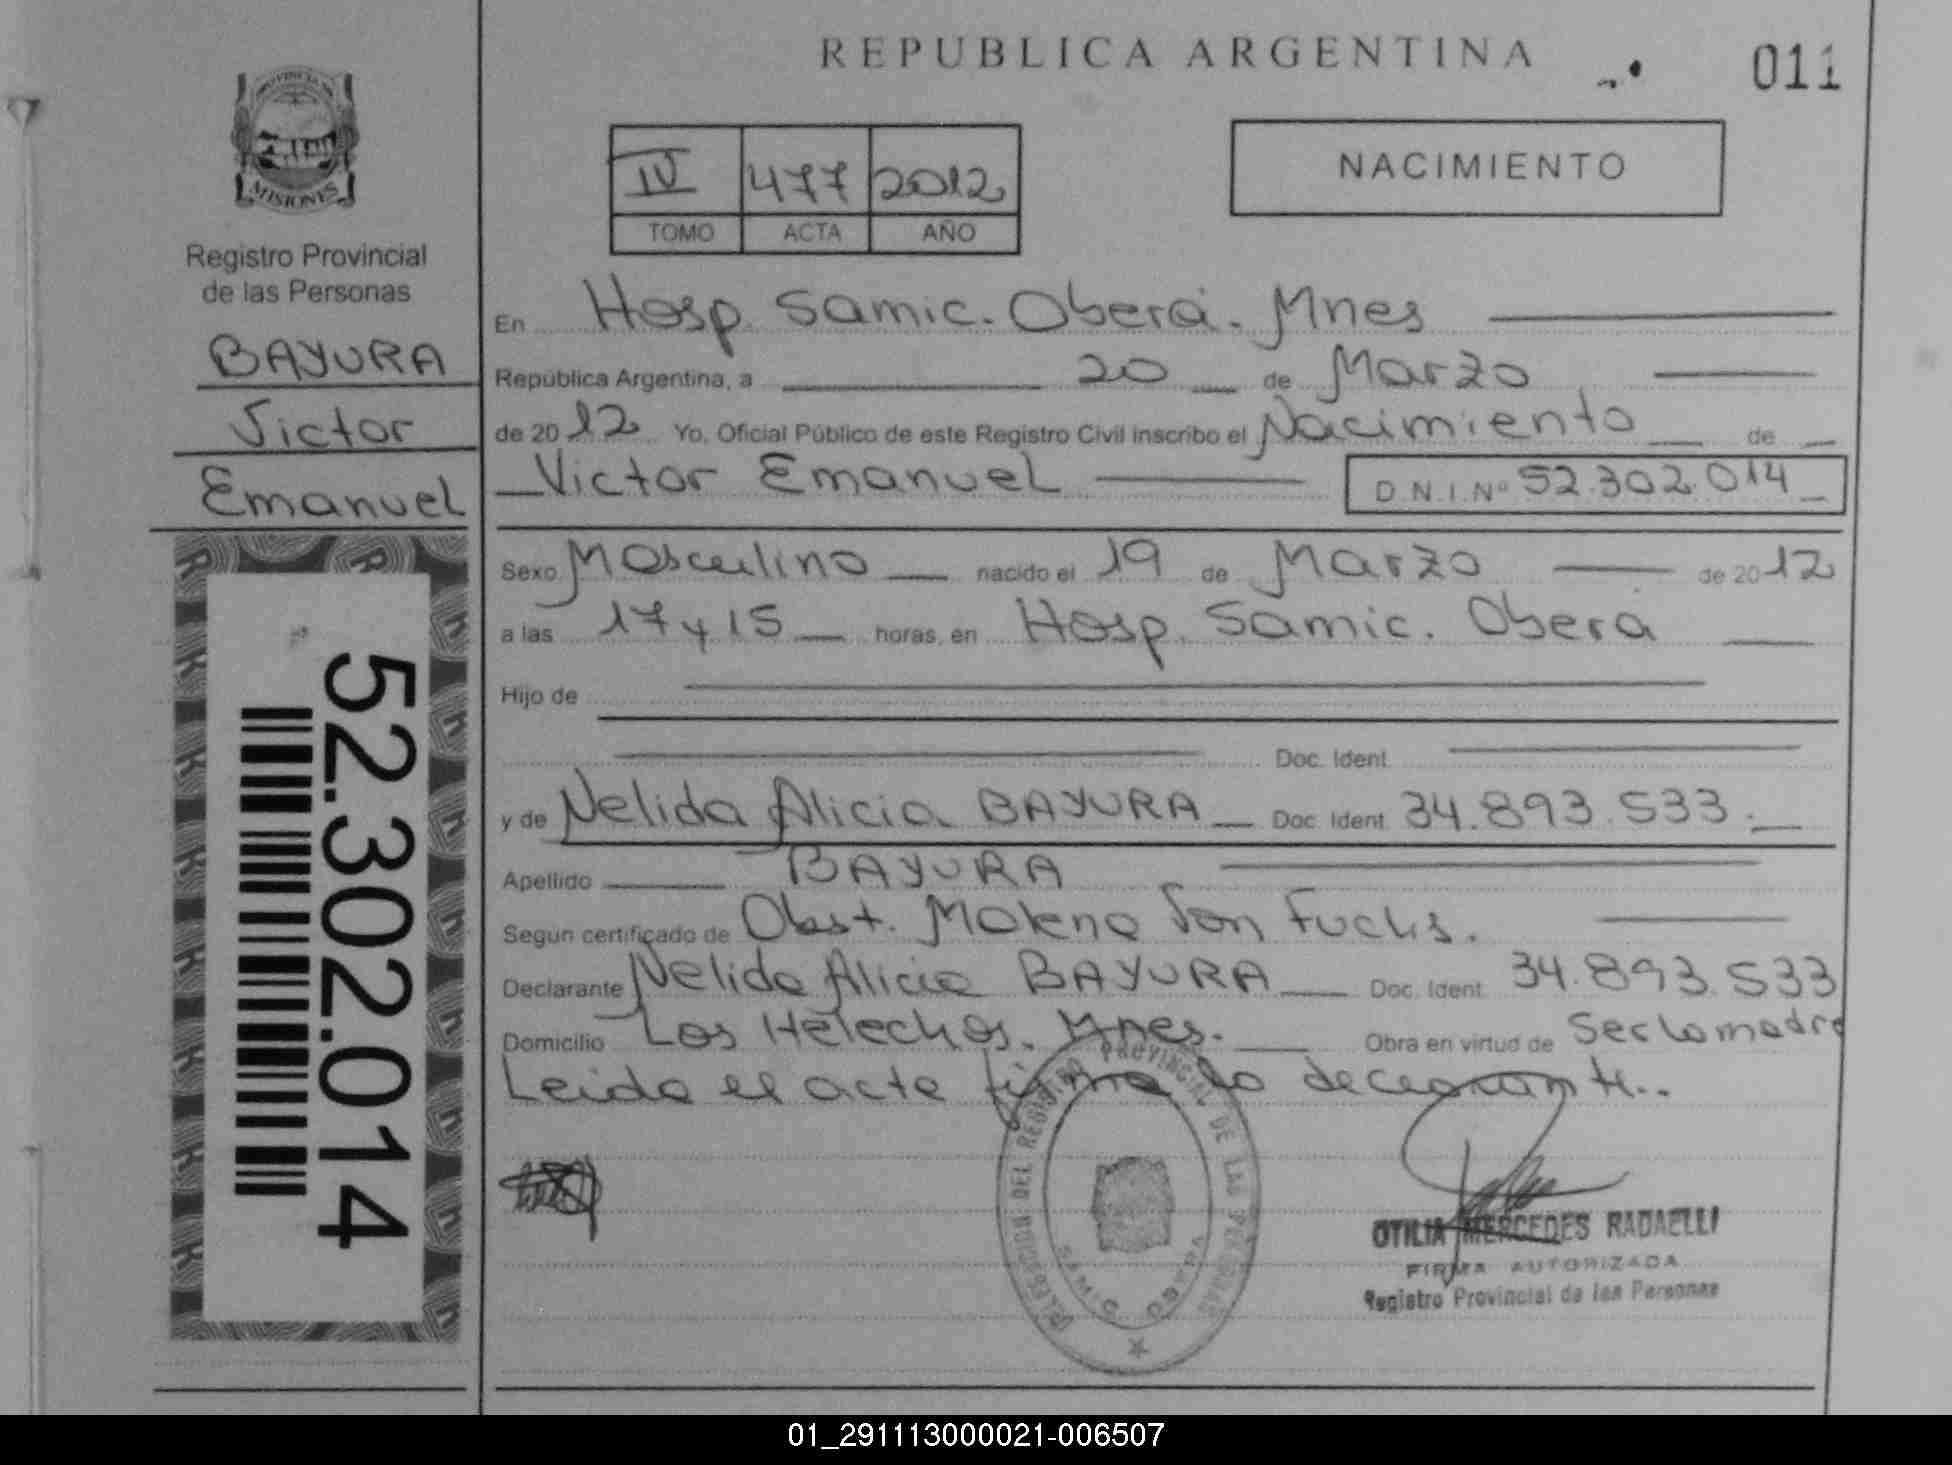 REPUBLICA ARGENTINA
011
PROVINCIA
MISIONES
Registro Provincial
de las Personas
BAYURA
Victor
Emanuel
52.302.014
IV 477 2012
TOMO ACTA AÑO
NACIMIENTO
En Hosp. Samic. Oberá. Mnes
República Argentina, a 20 de Marzo
de 2012 Yo, Oficial Público de este Registro Civil inscribo el Nacimiento de
Victor Emanuel D.N.I.Nº 52.302.014
Sexo Masculino nacido el 19 de Marzo de 2012
a las 17 y 15 horas, en Hosp. Samic. Oberá
Hijo de
Doc. Ident.
y de Nelida Alicia BAYURA Doc. Ident. 34.893.533.
Apellido BAYURA
Según certificado de Obst. Von Fuchs.
Declarante Nelida Alicia BAYURA Doc. Ident. 34.893.533
Domicilio Los Helechos. Mnes. Obra en virtud de Ser la madre
Leida el acta firma la
DELEGACION DEL REGISTRO PROVINCIAL DE LAS PERSONAS
SAMIC OBERA
OTILIA MERCEDES RADAELLI
FIRMA AUTORIZADA
Registro Provincial de las Personas
01_291113000021-006507